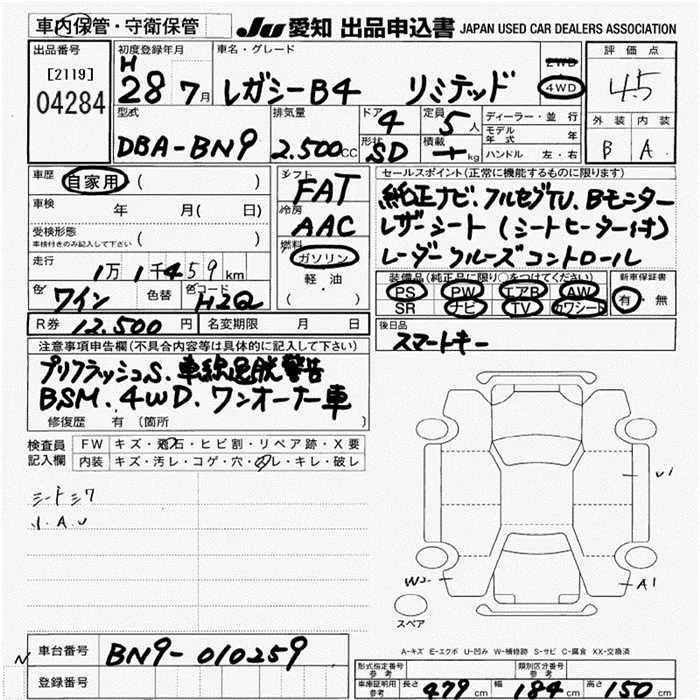 車内保管・守衛保管
JU 愛知 出品申込書 JAPAN USED CAR DEALERS ASSOCIATION
出品番号
[2119]
04284
初度登録年月
H
28 7月
車名・グレード
レガシーB4 リミテッド
2WD
4WD
評価点
4.5
外装 内装
B A
型式
DBA-BN9
排気量
2.500CC
ドア
4
形状
SD
定員
5人
積載
kg
ディーラー・並行
モデル年式 年
ハンドル 左・右
車歴 自家用 ( )
車検 年 月( 日)
受検形態 ( )
車検付きのみ記入して下さい
走行
1万1千459km
色 ワイン 色替 色コード H2Q
R券 12.500円 名変期限 月 日
シフト
FAT
冷房
AAC
燃料
ガソリン
軽・油
( ・ )
セールスポイント(正常に機能するものに限ります)
純正ナビ.フルセグTV.Bモニター
レザーシート(シートヒーター付)
レーダークルーズコントロール
装備品(純正品に限り○をつけてください)
PS PW エアB AW
SR ナビ TV カワシート
新車保証書
有・無
後日品
スマートキー
注意事項申告欄(不具合内容等は具体的に記入して下さい)
プリクラッシュS.車線逸脱警告
BSM.4WD.ワンオーナー車
修復歴 有 (箇所 )
検査員記入欄
FW キズ・飛石・ヒビ割・リペア跡・X要
内装 キズ・汚レ・コゲ・穴・スレ・キレ・破レ
シートシワ
小.A.U
U1
W2
A1
スペア
A-キズ E-エクボ U-凹み W-補修跡 S-サビ C-腐食 XX-交換済
車台番号 BN9-010259
登録番号
形式指定番号 参考
類別区分番号 参考
車庫証明用 参考 長さ 479cm 幅 184cm 高さ 150cm